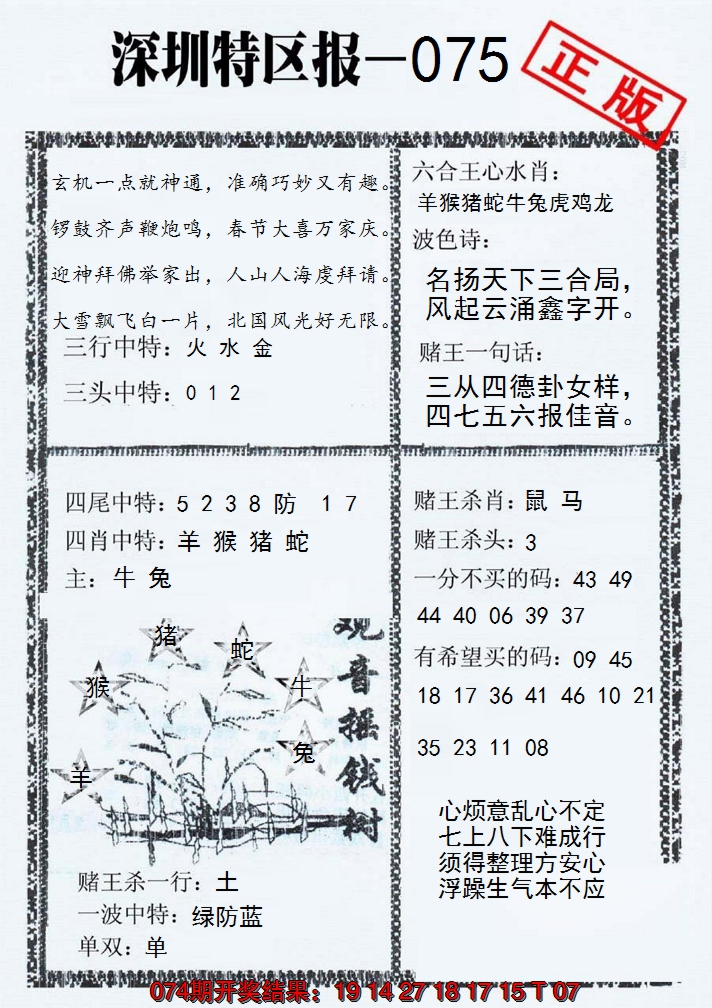 深圳特区报—075
正版
玄机一点就神通，准确巧妙又有趣。
锣鼓齐声鞭炮鸣，春节大喜万家庆。
迎神拜佛举家出，人山人海虔拜请。
大雪飘飞白一片，北国风光好无限。
三行中特：火 水 金
三头中特：0 1 2
六合王心水肖：
羊猴猪蛇牛兔虎鸡龙
波色诗：
名扬天下三合局，
风起云涌鑫字开。
赌王一句话：
三从四德卦女样，
四七五六报佳音。
四尾中特：5 2 3 8 防 1 7
四肖中特：羊 猴 猪 蛇
主：牛 兔
猪
蛇
猴
牛
兔
羊
观音摇钱树
赌王杀一行：土
一波中特：绿防蓝
单双：单
赌王杀肖：鼠 马
赌王杀头：3
一分不买的码：43 49
44 40 06 39 37
有希望买的码：09 45
18 17 36 41 46 10 21
35 23 11 08
心烦意乱心不定
七上八下难成行
须得整理方安心
浮躁生气本不应
074期开奖结果：19 14 27 18 17 15 T 07